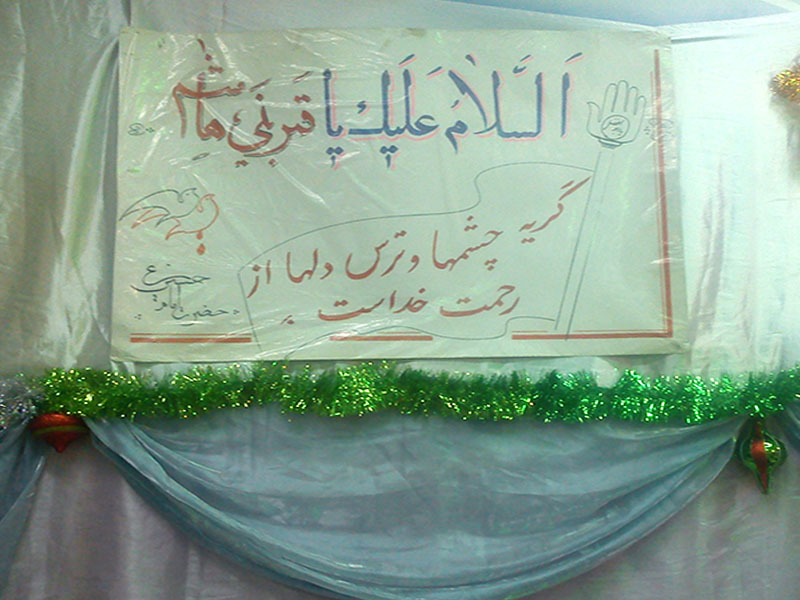 اَلسَّلامُ عَلَيكَ يا قمَر بَني هاشم
گریه چشمها و ترس دلها از
رحمت خداست .